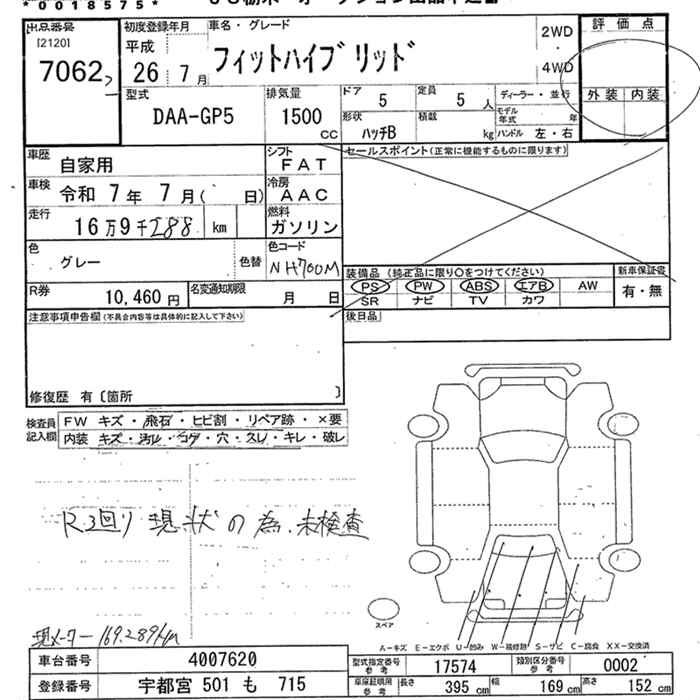 *0018575*
出品番号 初度登録年月 車名・グレード 2WD 評価点
[2120] 平成 フィットハイブリッド
7062 26年7月 4WD
外装 内装
型式 排気量 ドア 5 定員 5人 ディーラー・並行
DAA-GP5 1500cc 形状 ハッチB 積載 kg モデル年式 年
ハンドル 左・右
車歴 自家用 シフト FAT セールスポイント(正常に機能するものに限ります)
車検 令和7年7月( 日) 冷房 AAC
走行 16万9千288 km 燃料 ガソリン
色 グレー 色替 色コード NH700M
装備品(純正品に限り○をつけてください) 新車保証書
R券 10,460円 名変通知期限 月 日 PS PW ABS エアB AW 有・無
SR ナビ TV カワ
注意事項申告欄(不具合内容等は具体的に記入して下さい) 後日品
修復歴 有〔箇所 〕
検査員記入欄 FW キズ・飛石・ヒビ割・リペア跡・×要
内装 キズ・汚レ・コゲ・穴・スレ・キレ・破レ
R3回り現状の為、未検査
スペア
現メーター169,289km
A-キズ E-エクボ U-凹み W-補修跡 S-サビ C-腐食 XX-交換済
車台番号 4007620 型式指定番号 参考 17574 類別区分番号 参考 0002
登録番号 宇都宮 501 も 715 車庫証明用 参考 長さ 395cm 幅 169cm 高さ 152cm